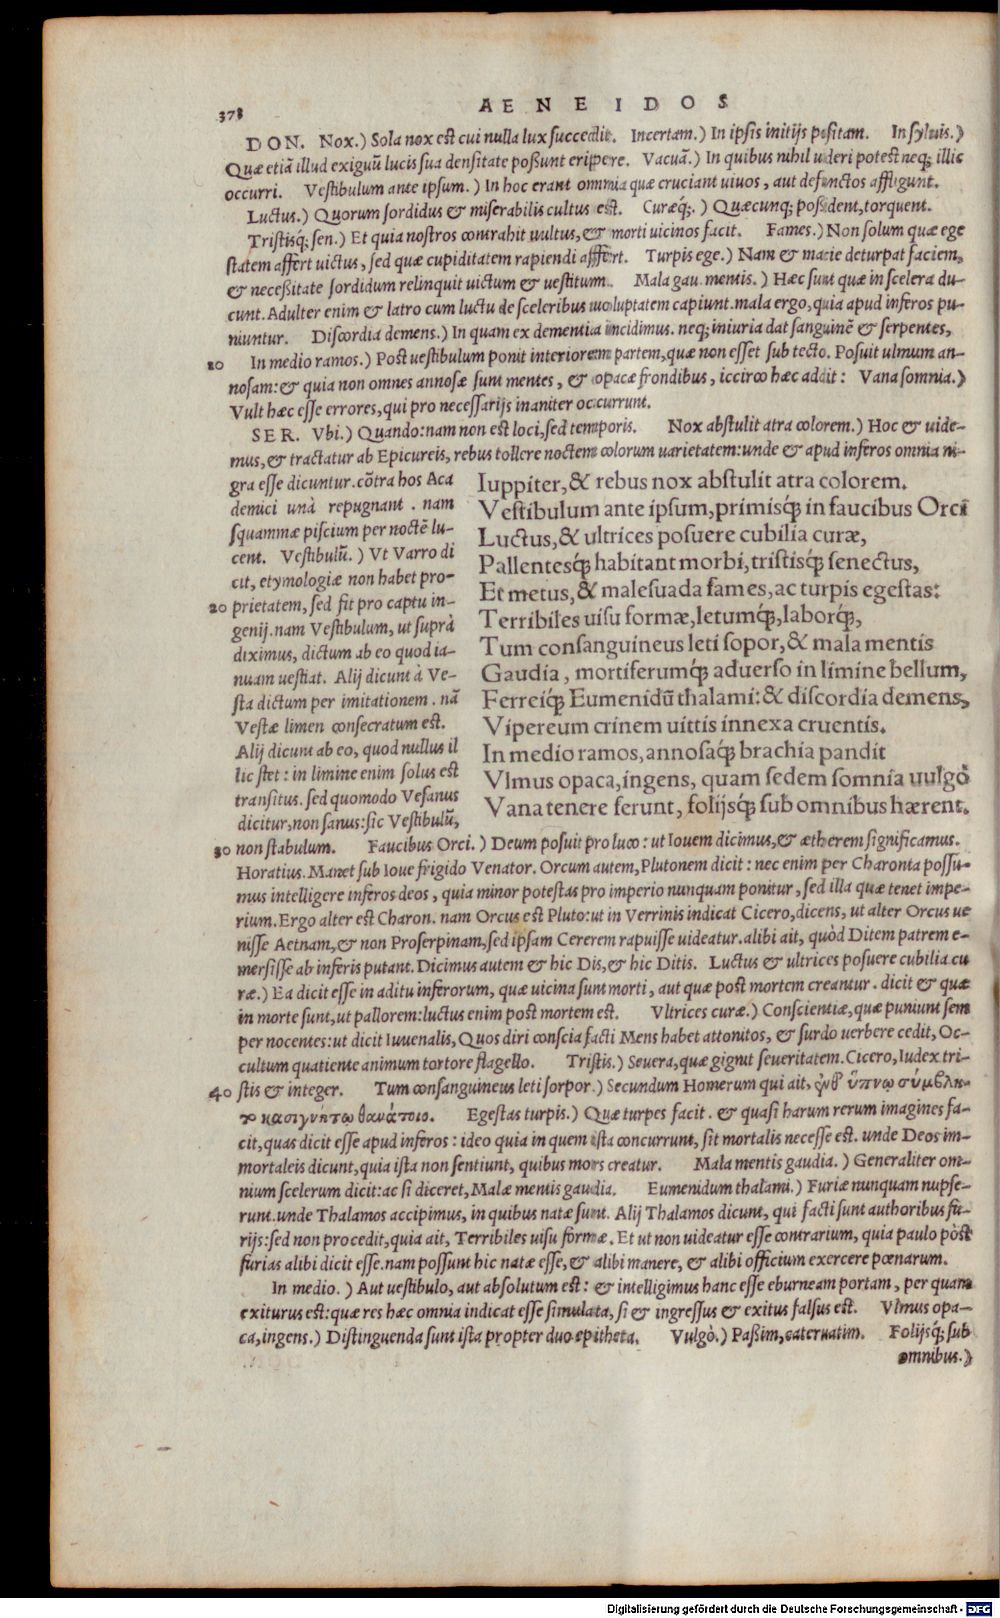 378
AENEIDOS
DON. Nox.) Sola nox est cui nulla lux succedit. Incertam.) In ipsis initijs positam. In syluis.)
Quæ etiā illud exiguū lucis sua densitate poßunt erippere. Vacuā.) In quibus nihil uideri potest neq; illic
occurri. Vestibulum ante ipsum.) In hoc erant omnia quæ cruciant uiuos, aut defunctos affligunt.
Luctus.) Quorum sordidus & miserabilis cultus est. Curæq;.) Quæcunq; poßident, torquent.
Tristisq; sen.) Et quia nostros contrahit uultus, & morti uicinos facit. Fames.) Non solum quæ ege
statem affert uictus, sed quæ cupiditatem rapiendi affert. Turpis ege.) Nam & macie deturpat faciem,
& neceßitate sordidum relinquit uictum & uestitum. Mala gau. mentis.) Hæc sunt quæ in scelera du-
cunt. Adulter enim & latro cum luctu de sceleribus uoluptatem capiunt. mala ergo, quia apud inferos pu-
niuntur. Discordia demens.) In quam ex dementia incidimus. neq; iniuria dat sanguinē & serpentes,
10 In medio ramos.) Post uestibulum ponit interiorem partem, quæ non esset sub tecto. Posuit ulmum an-
nosam: & quia non omnes annosæ sunt mentes, & opacæ frondibus, iccirco hæc addit: Vana somnia.)
Vult hæc esse errores, qui pro necessarijs inaniter occurrunt.
SER. Vbi.) Quando: nam non est loci, sed temporis. Nox abstulit atra colorem.) Hoc & uide-
mus, & tractatur ab Epicureis, rebus tollere noctem colorum uarietatem: unde & apud inferos omnia ni-
gra esse dicuntur. cōtra hos Aca
demici unà repugnant. nam
squammæ piscium per noctē lu-
cent. Vestibulū.) Vt Varro di
cit, etymologiæ non habet pro-
20 prietatem, sed fit pro captu in-
genij. nam Vestibulum, ut suprà
diximus, dictum ab eo quod ia-
nuam uestiat. Alij dicunt à Ve-
sta dictum per imitationem. nā
Vestæ limen consecratum est.
Alij dicunt ab eo, quod nullus il
lic stet: in limine enim solus est
transitus. sed quomodo Vesanus
dicitur, non sanus: sic Vestibulū,
Iuppiter, & rebus nox abstulit atra colorem.
Vestibulum ante ipsum, primisq́; in faucibus Orci
Luctus, & ultrices posuere cubilia curæ,
Pallentesq́; habitant morbi, tristisq́; senectus,
Et metus, & malesuada fames, ac turpis egestas:
Terribiles uisu formæ, letumq́;, laborq́;,
Tum consanguineus leti sopor, & mala mentis
Gaudia, mortiferumq́; aduerso in limine bellum,
Ferreiq́; Eumenidū thalami: & discordia demens,
Vipereum crinem uittis innexa cruentis.
In medio ramos, annosaq́; brachia pandit
Vlmus opaca, ingens, quam sedem somnia uulgò
Vana tenere ferunt, folijsq́; sub omnibus hærent.
30 non stabulum. Faucibus Orci.) Deum posuit pro luco: ut Iouem dicimus, & ætherem significamus.
Horatius. Manet sub Ioue frigido Venator. Orcum autem, Plutonem dicit: nec enim per Charonta possu-
mus intelligere inferos deos, quia minor potestas pro imperio nunquam ponitur, sed illa quæ tenet impe-
rium. Ergo alter est Charon. nam Orcus est Pluto: ut in Verrinis indicat Cicero, dicens, ut alter Orcus ue
nisse Aetnam, & non Proserpinam, sed ipsam Cererem rapuisse uideatur. alibi ait, quòd Ditem patrem e-
mersisse ab inferis putant. Dicimus autem & hic Dis, & hic Ditis. Luctus & ultrices posuere cubilia cu
ræ.) Ea dicit esse in aditu inferorum, quæ uicina sunt morti, aut quæ post mortem creantur. dicit & quæ
in morte sunt, ut pallorem: luctus enim post mortem est. Vltrices curæ.) Conscientiæ, quæ puniunt sem
per nocentes: ut dicit Iuuenalis, Quos diri conscia facti Mens habet attonitos, & surdo uerbere cedit, Oc-
cultum quatiente animum tortore flagello. Tristis.) Seuera, quæ gignit seueritatem. Cicero, Iudex tri-
40 stis & integer. Tum consanguineus leti sorpor.) Secundum Homerum qui ait, ἔνθ᾽ ὕπνῳ σύμβλη-
το κασιγνήτῳ θανάτοιο. Egestas turpis.) Quæ turpes facit. & quasi harum rerum imagines fa-
cit, quas dicit esse apud inferos: ideo quia in quem ista concurrunt, sit mortalis necesse est. unde Deos im-
mortaleis dicunt, quia ista non sentiunt, quibus mors creatur. Mala mentis gaudia.) Generaliter om-
nium scelerum dicit: ac si diceret, Malæ mentis gaudia. Eumenidum thalami.) Furiæ nunquam nupse-
runt. unde Thalamos accipimus, in quibus natæ sunt. Alij Thalamos dicunt, qui facti sunt authoribus fu-
rijs: sed non procedit, quia ait, Terribiles uisu formæ. Et ut non uideatur esse contrarium, quia paulo pòst
furias alibi dicit esse. nam possunt hic natæ esse, & alibi manere, & alibi officium exercere pœnarum.
In medio.) Aut uestibulo, aut absolutum est: & intelligimus hanc esse eburneam portam, per quam
exiturus est: quæ res hæc omnia indicat esse simulata, si & ingressus & exitus falsus est. Vlmus opa-
ca, ingens.) Distinguenda sunt ista propter duo epitheta. Vulgò.) Paßim, cateruatim. Folijsq́; sub
omnibus.)
Digitalisierung gefördert durch die Deutsche Forschungsgemeinschaft - DFG